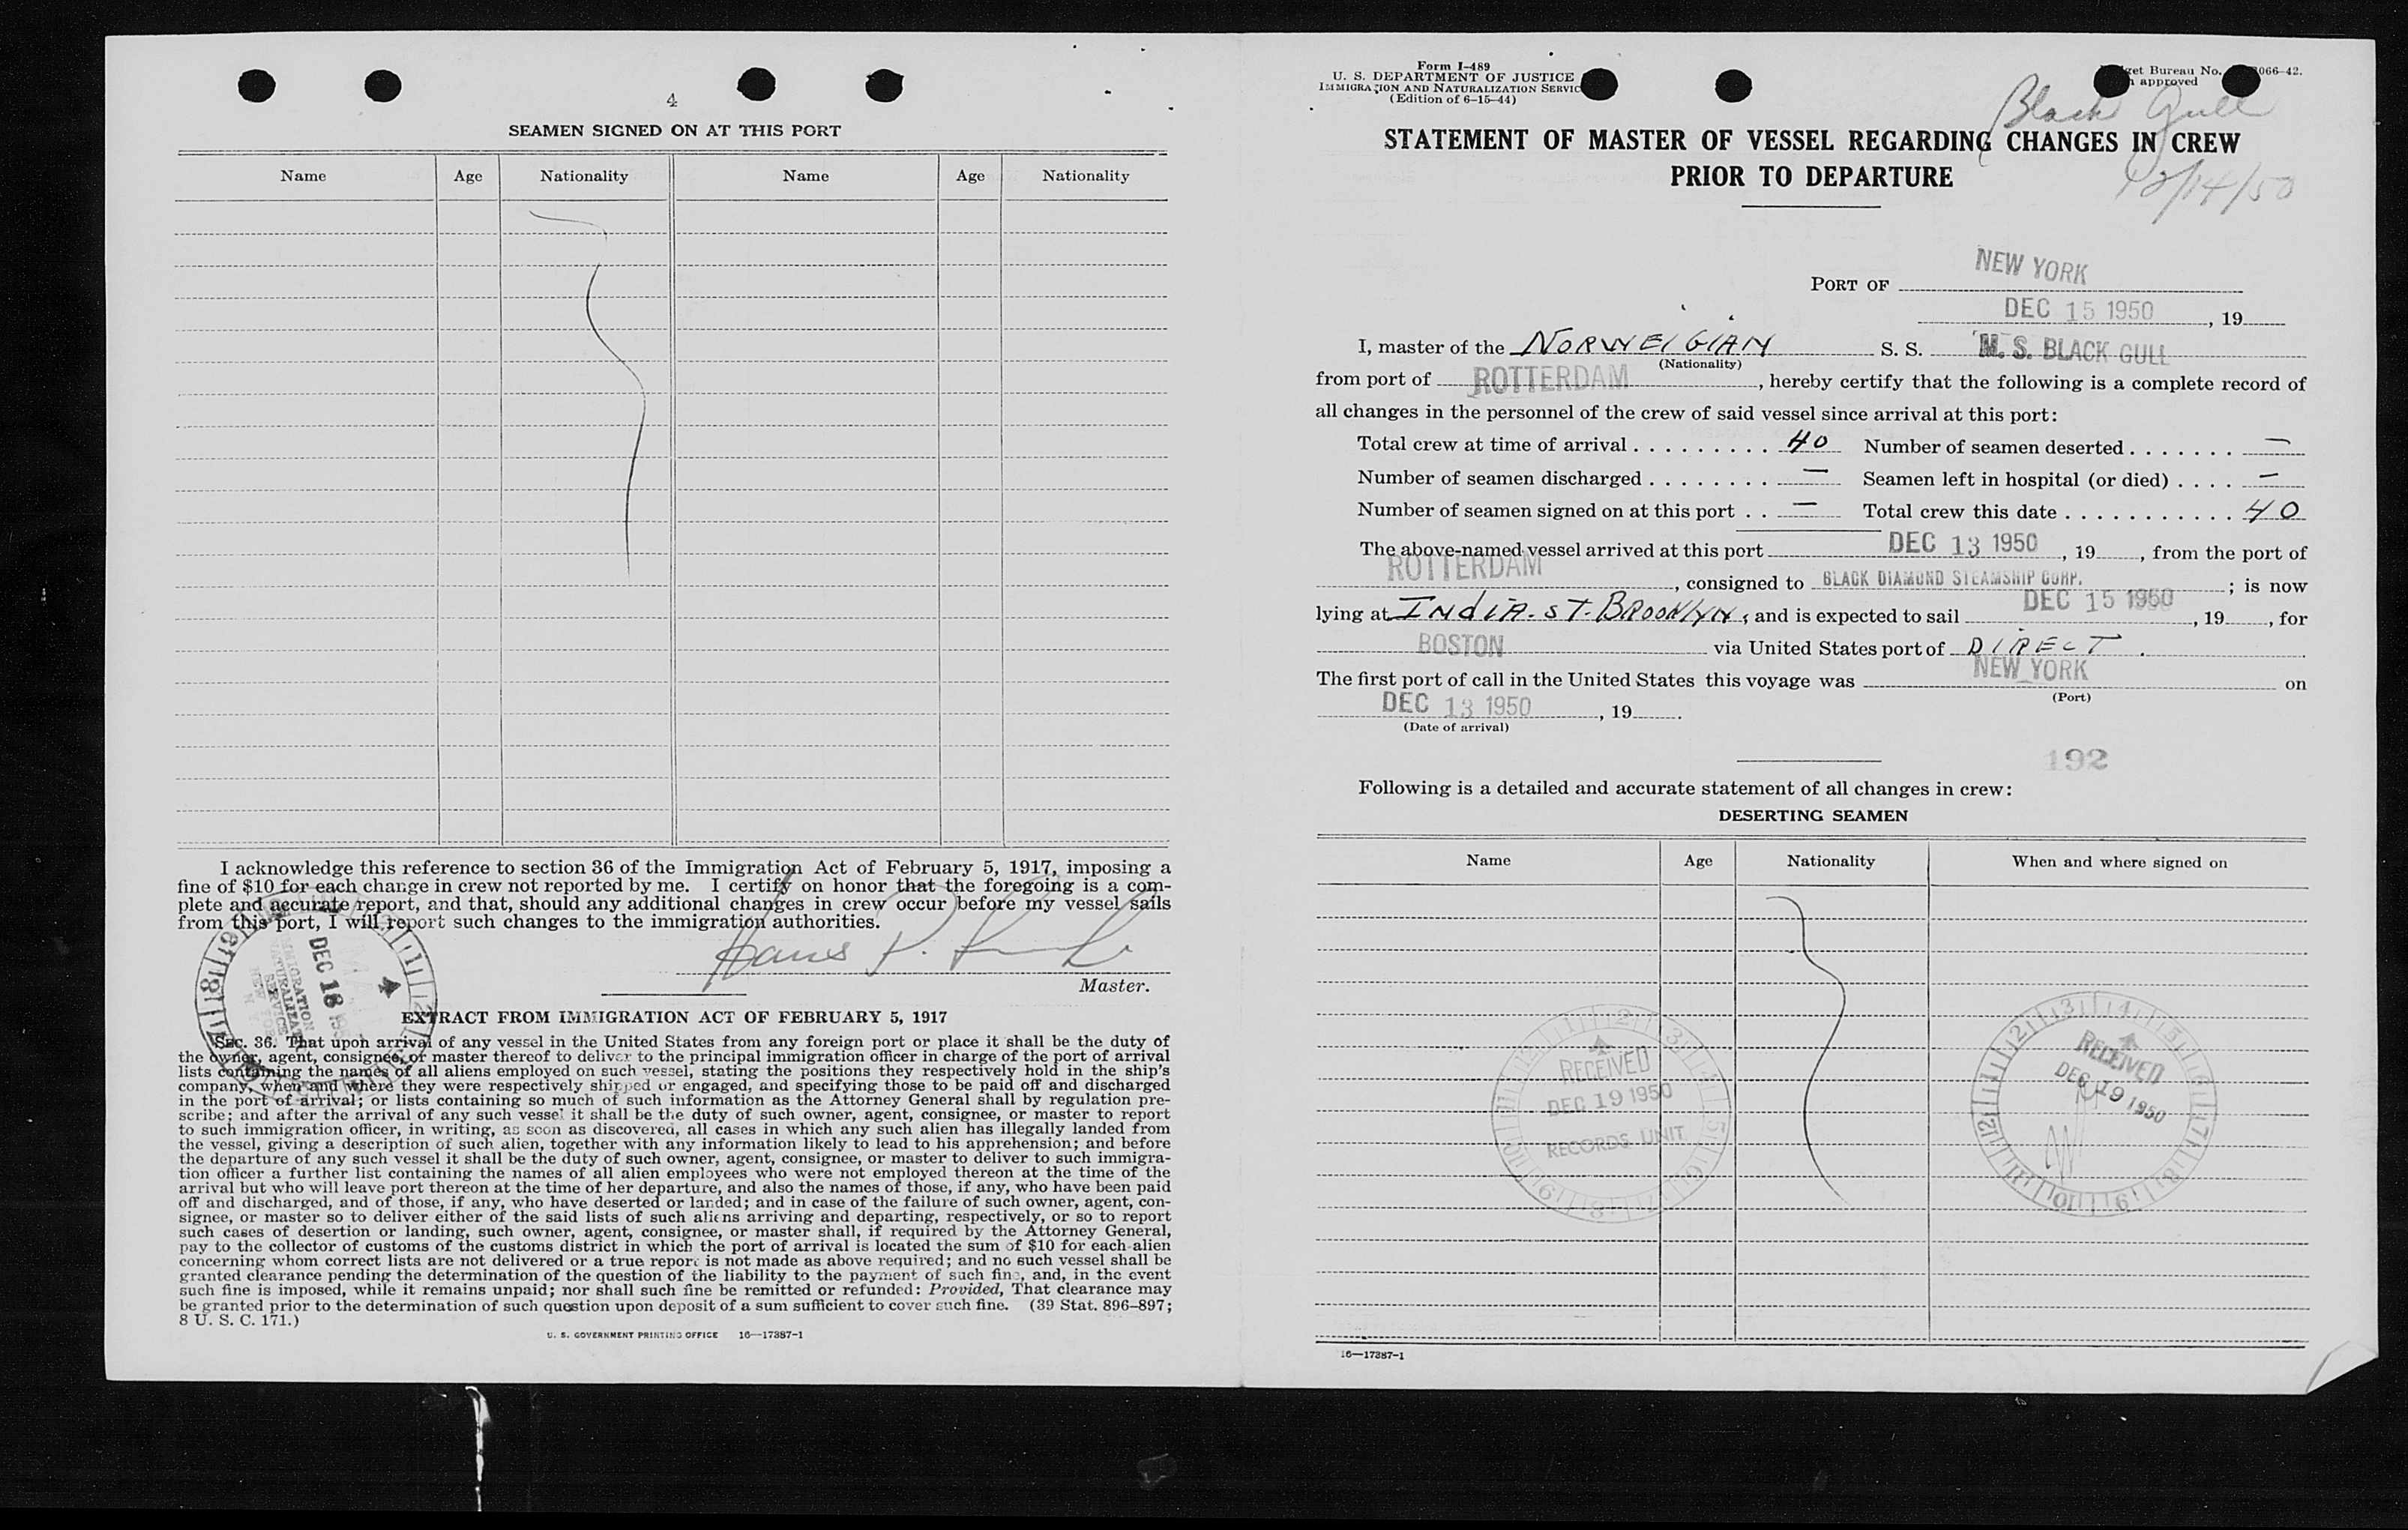 4
SEAMEN SIGNED ON AT THIS PORT
Name Age Nationality Name Age Nationality
I acknowledge this reference to section 36 of the Immigration Act of February 5, 1917, imposing a
fine of $10 for each change in crew not reported by me. I certify on honor that the foregoing is a com-
plete and accurate report, and that, should any additional changes in crew occur before my vessel sails
from this port, I will report such changes to the immigration authorities.
Hans P.
Master.
DEC 18
IMMIGRATION
NATURALIZATION
SERVICE
EXTRACT FROM IMMIGRATION ACT OF FEBRUARY 5, 1917
SEC. 36. That upon arrival of any vessel in the United States from any foreign port or place it shall be the duty of
the owner, agent, consignee, or master thereof to deliver to the principal immigration officer in charge of the port of arrival
lists containing the names of all aliens employed on such vessel, stating the positions they respectively hold in the ship's
company, when and where they were respectively shipped or engaged, and specifying those to be paid off and discharged
in the port of arrival; or lists containing so much of such information as the Attorney General shall by regulation pre-
scribe; and after the arrival of any such vessel it shall be the duty of such owner, agent, consignee, or master to report
to such immigration officer, in writing, as soon as discovered, all cases in which any such alien has illegally landed from
the vessel, giving a description of such alien, together with any information likely to lead to his apprehension; and before
the departure of any such vessel it shall be the duty of such owner, agent, consignee, or master to deliver to such immigra-
tion officer a further list containing the names of all alien employees who were not employed thereon at the time of the
arrival but who will leave port thereon at the time of her departure, and also the names of those, if any, who have been paid
off and discharged, and of those, if any, who have deserted or landed; and in case of the failure of such owner, agent, con-
signee, or master so to deliver either of the said lists of such aliens arriving and departing, respectively, or so to report
such cases of desertion or landing, such owner, agent, consignee, or master shall, if required by the Attorney General,
pay to the collector of customs of the customs district in which the port of arrival is located the sum of $10 for each alien
concerning whom correct lists are not delivered or a true report is not made as above required; and no such vessel shall be
granted clearance pending the determination of the question of the liability to the payment of such fine, and, in the event
such fine is imposed, while it remains unpaid; nor shall such fine be remitted or refunded: Provided, That clearance may
be granted prior to the determination of such question upon deposit of a sum sufficient to cover such fine. (39 Stat. 896–897;
8 U. S. C. 171.)
U. S. GOVERNMENT PRINTING OFFICE 16—17387-1
Form I-489
U. S. DEPARTMENT OF JUSTICE
IMMIGRATION AND NATURALIZATION SERVIC
(Edition of 6-15-44)
get Bureau No. 066-42.
approved
Black Gull
STATEMENT OF MASTER OF VESSEL REGARDING CHANGES IN CREW
PRIOR TO DEPARTURE
12/14/50
PORT OF NEW YORK
DEC 15 1950, 19
I, master of the NORWEIGIAN S. S. M. S. BLACK GULL
(Nationality)
from port of ROTTERDAM, hereby certify that the following is a complete record of
all changes in the personnel of the crew of said vessel since arrival at this port:
Total crew at time of arrival . . . . . . . . . 40 Number of seamen deserted . . . . . . . —
Number of seamen discharged . . . . . . . . — Seamen left in hospital (or died) . . . . —
Number of seamen signed on at this port . . — Total crew this date . . . . . . . . . . . 40
The above-named vessel arrived at this port DEC 13 1950, 19, from the port of
ROTTERDAM, consigned to BLACK DIAMOND STEAMSHIP CORP.; is now
lying at INDIA. ST. BROOKLYN, and is expected to sail DEC 15 1950, 19, for
BOSTON via United States port of DIRECT.
The first port of call in the United States this voyage was NEW YORK on
(Port)
DEC 13 1950, 19.
(Date of arrival)
192
Following is a detailed and accurate statement of all changes in crew:
DESERTING SEAMEN
Name Age Nationality When and where signed on
RECEIVED
DEC 19 1950
RECORDS UNIT
RECEIVED
DEC 19 1950
16—17387-1